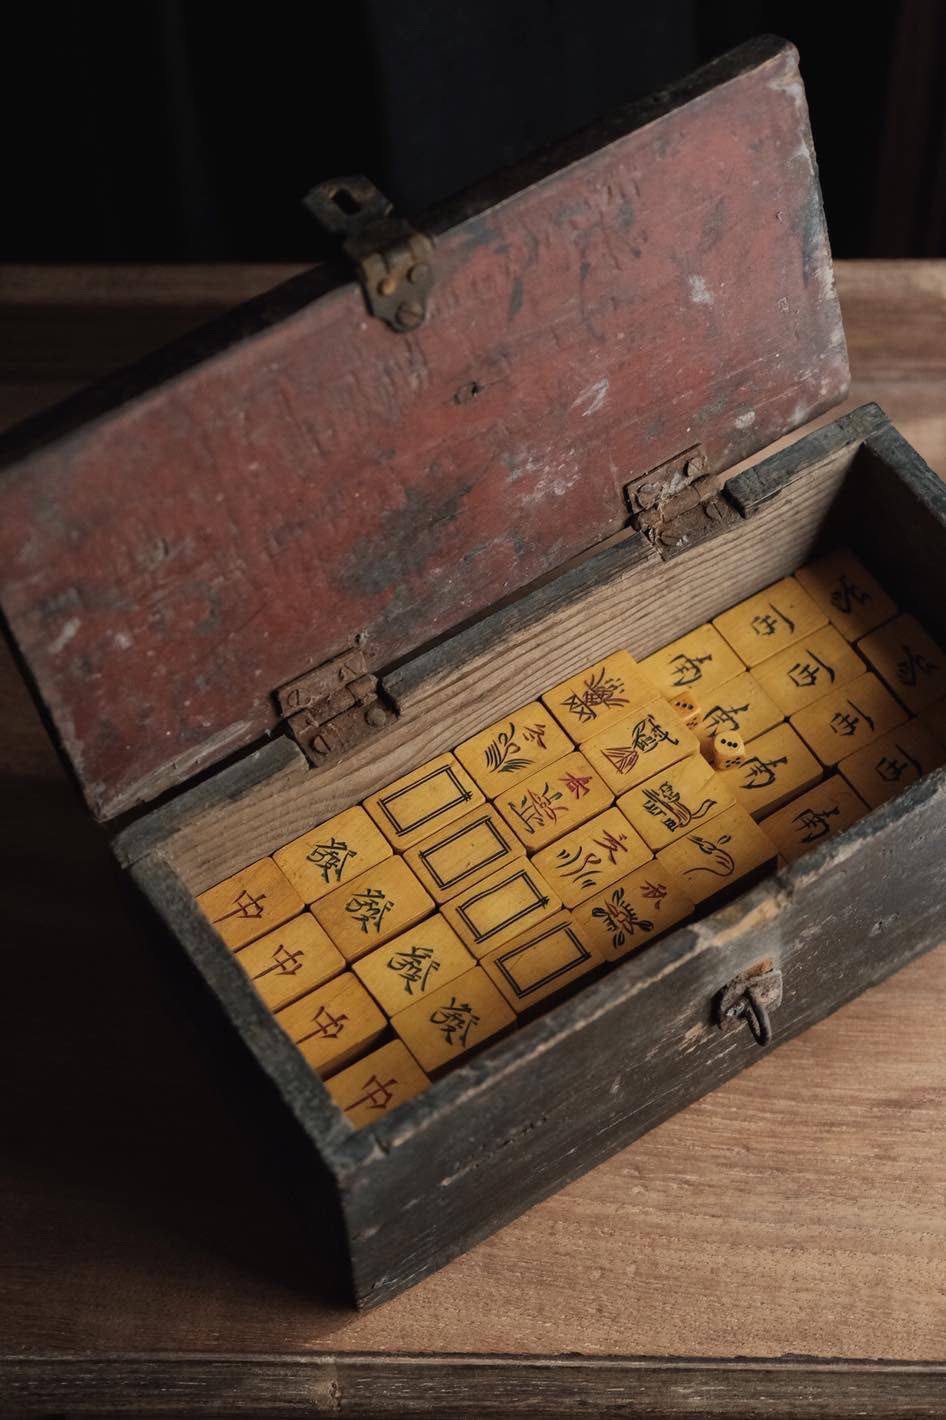 中
中
中
中
發
發
發
發
冬
春
秋
南
南
南
南
西
西
西
西